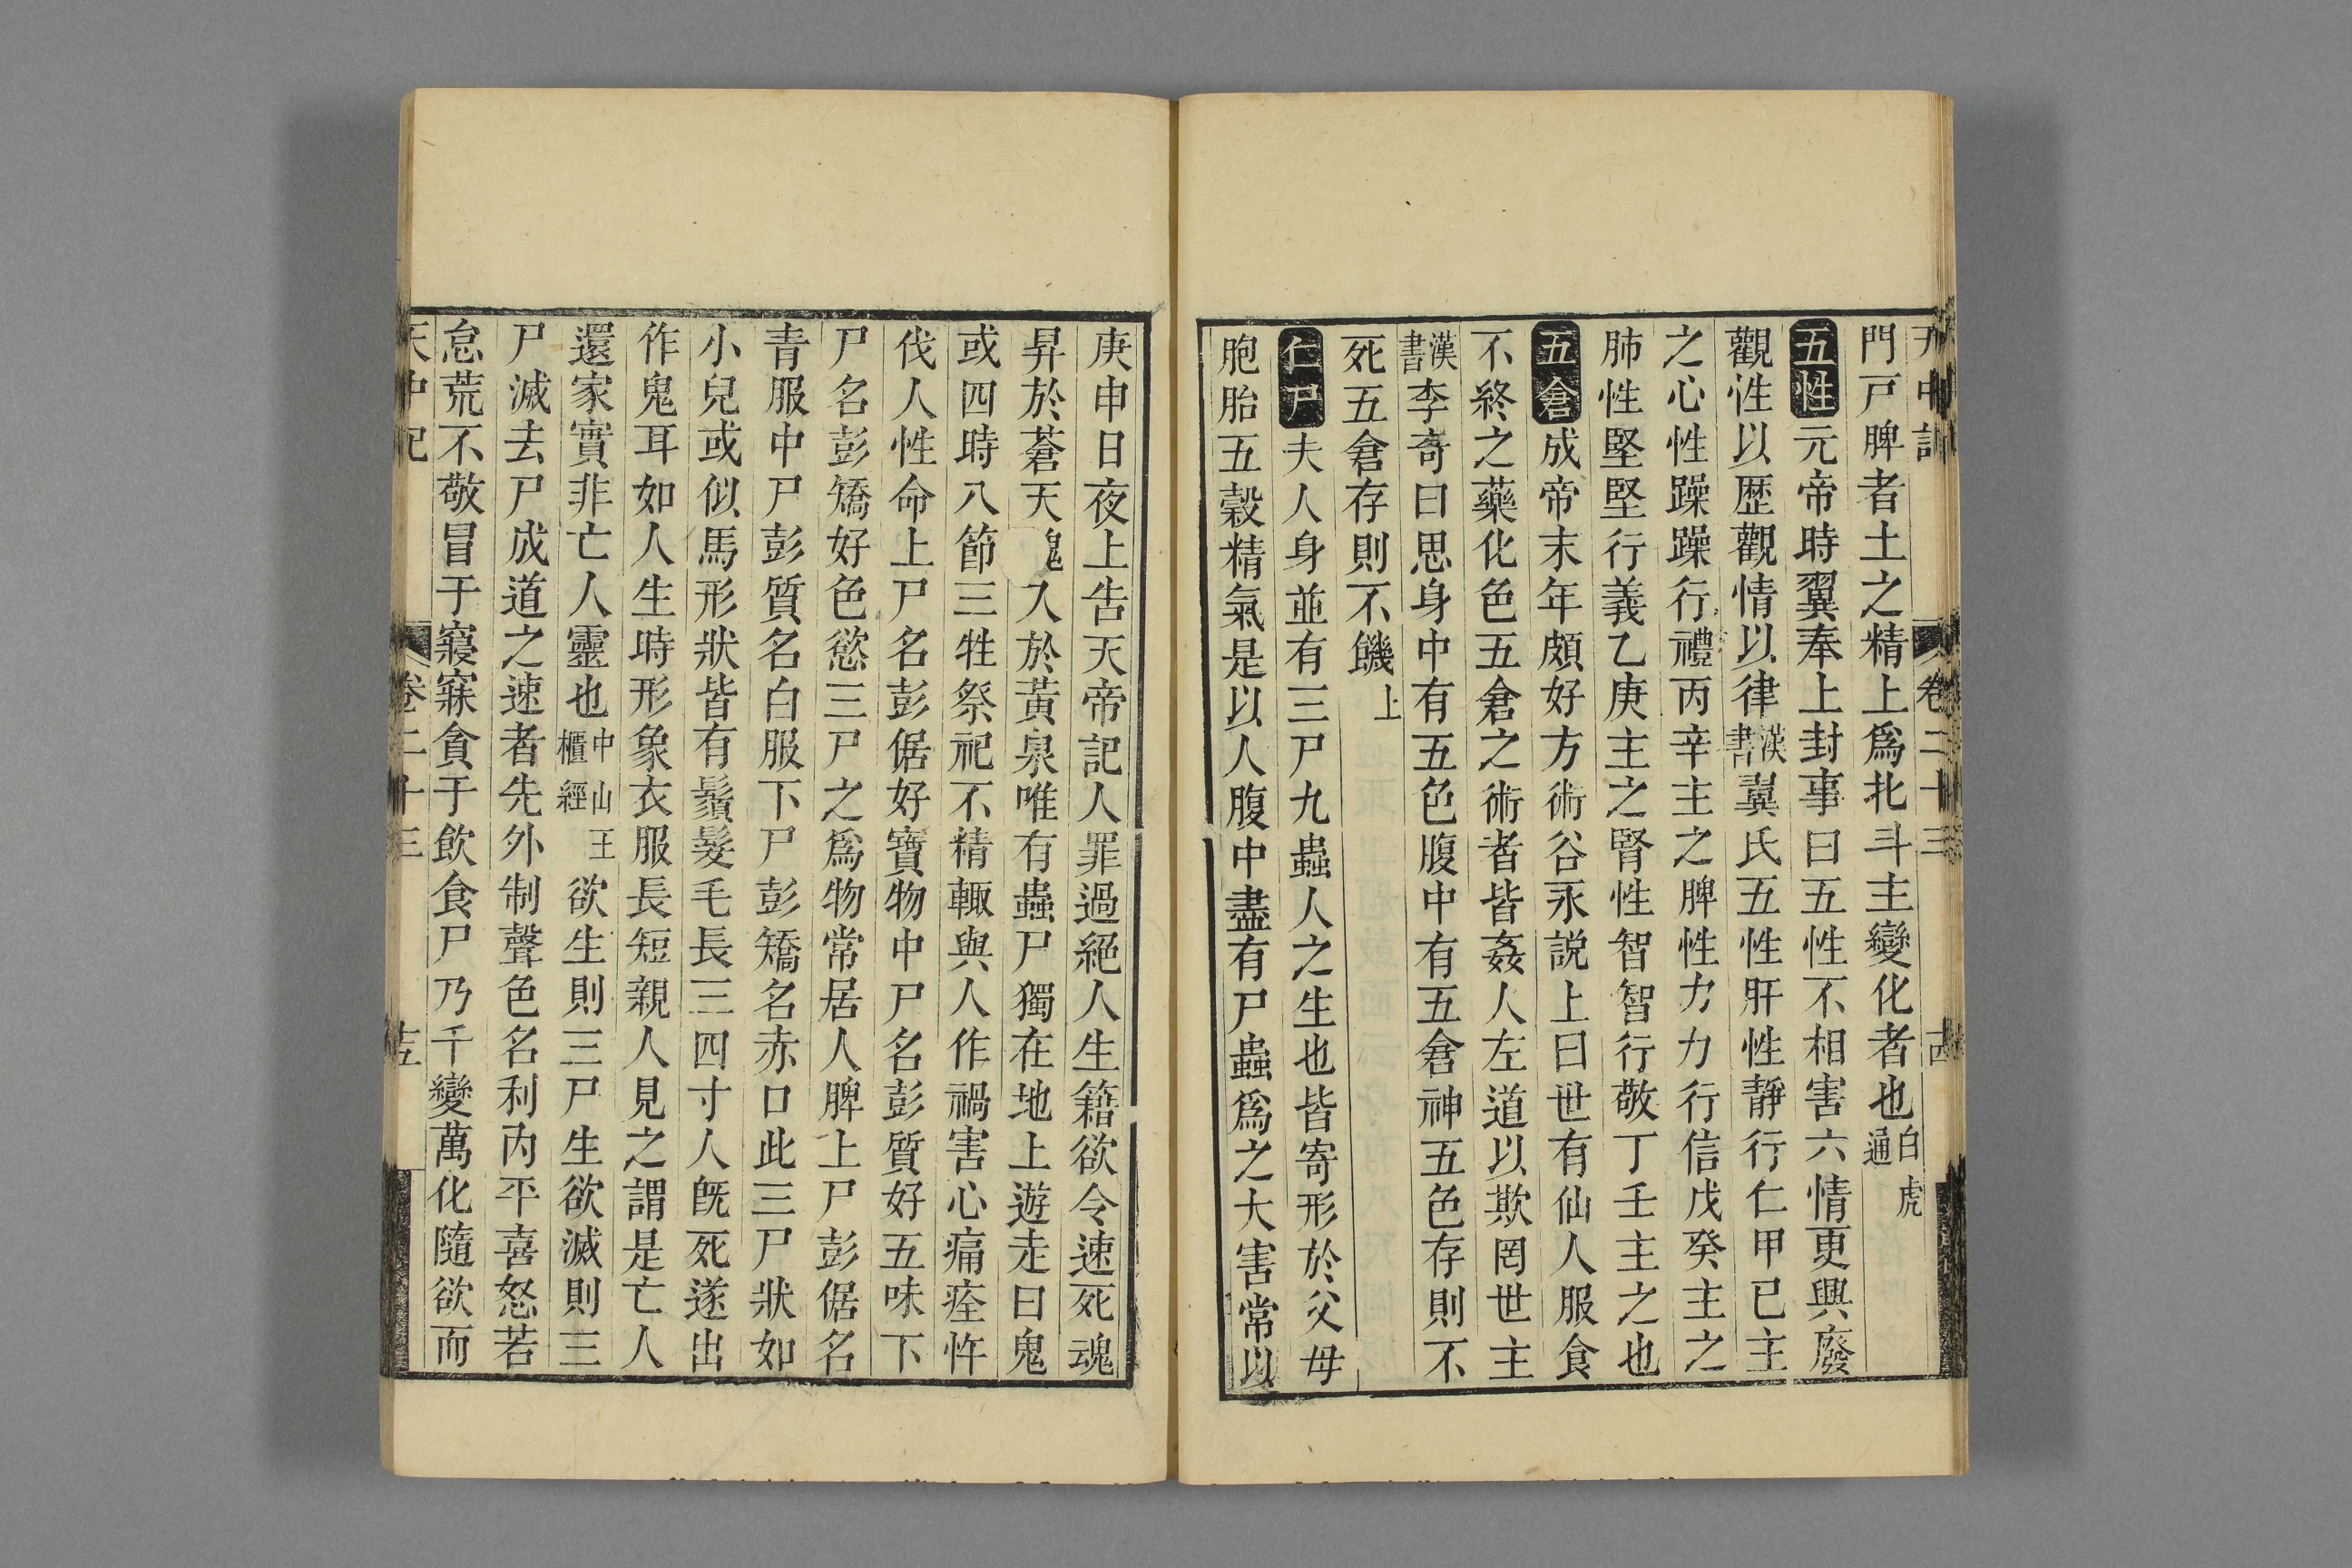 天中記 卷二十三 十四
門戸脾者土之精上爲北斗主變化者也白虎通
五性元帝時翼奉上封事曰五性不相害六情更興廢
觀性以歴觀情以律漢書翼氏五性肝性靜行仁甲已主
之心性躁躁行禮丙辛主之脾性力力行信戊癸主之
肺性堅堅行義乙庚主之腎性智智行敬丁壬主之也
五倉成帝末年頗好方術谷永説上曰世有仙人服食
不終之藥化色五倉之術者皆姦人左道以欺罔世主
漢書李奇曰思身中有五色腹中有五倉神五色存則不
死五倉存則不饑上
仁尸夫人身並有三尸九蟲人之生也皆寄形於父母
胞胎五穀精氣是以人腹中盡有尸蟲爲之大害常以
庚申日夜上告天帝記人罪過絕人生籍欲令速死魂
昇於蒼天鬼入於黃泉唯有蟲尸獨在地上遊走曰鬼
或四時八節三牲祭祀不精輙與人作禍害心痛疰忤
伐人性命上尸名彭倨好寶物中尸名彭質好五味下
尸名彭矯好色慾三尸之爲物常居人脾上尸彭倨名
青服中尸彭質名白服下尸彭矯名赤口此三尸狀如
小兒或似馬形狀皆有鬚髮毛長三四寸人旣死遂出
作鬼耳如人生時形象衣服長短親人見之謂是亡人
還家實非亡人靈也中山王櫃經欲生則三尸生欲滅則三
尸滅去尸成道之速者先外制聲色名利內平喜怒若
怠荒不敬冒于寢寐貪于飲食尸乃千變萬化隨欲而
天中記 卷二十三 十五